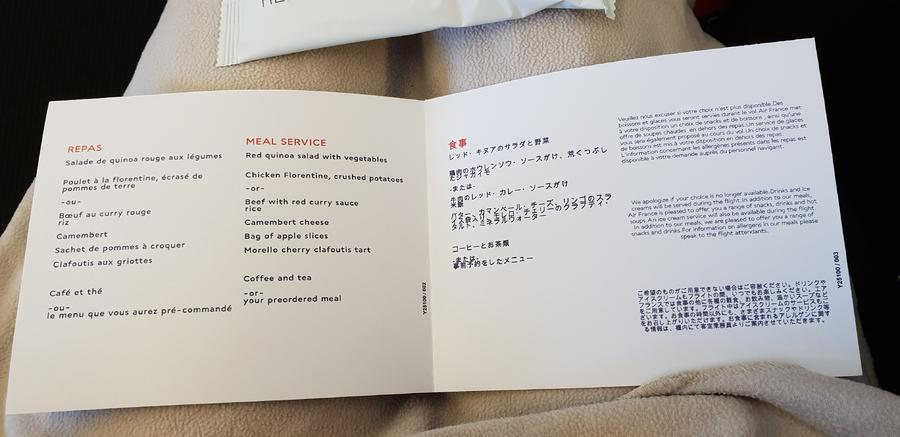 REPAS
Salade de quinoa rouge aux légumes
Poulet à la florentine, écrasé de
pommes de terre
-ou-
Bœuf au curry rouge
riz
Camembert
Sachet de pommes à croquer
Clafoutis aux griottes
Café et thé
-ou-
le menu que vous aurez pré-commandé
MEAL SERVICE
Red quinoa salad with vegetables
Chicken Florentine, crushed potatoes
-or-
Beef with red curry sauce
rice
Camembert cheese
Bag of apple slices
Morello cherry clafoutis tart
Coffee and tea
-or-
your preordered meal
Y25100 / 002
食事
レッド・キヌアのサラダと野菜
鶏肉のホウレンソウ・ソースがけ、荒くつぶし
たジャガイモ
-または-
牛肉のレッド・カレー・ソースがけ
米飯
バター、カマンベール・チーズ、リンゴのスラ
コーヒーとお茶類
-または-
事前予約をしたメニュー
Veuillez nous excuser si votre choix n'est plus disponible.Des
boissons et glaces vous seront servies durant le vol.Air France met
à votre disposition un choix de snacks et de boissons , ainsi qu'une
offre de soupes chaudes en dehors des repas.Un service de glaces
vous sera également proposé au cours du vol.Un choix de snacks et
de boissons est mis à votre disposition en dehors des repas.
L'information concernant les allergènes présents dans les repas est
disponible à votre demande auprès du personnel navigant.
We apologize if your choice is no longer available.Drinks and ice
creams will be served during the flight.In addition to our meals,
Air France is pleased to offer you a range of snacks, drinks and hot
soups.An ice cream service will also be available during the flight.
In addition to our meals, we are pleased to offer you a range of
snacks and drinks.For information on allergens in our meals please
speak to the flight attendants.
ご希望のものがご用意できない場合はご容赦ください。ドリンクや
アイスクリームもフライトの間、いつでもお楽しみください。エア
フランスでは食事の他に各種の軽食、お飲み物、温かいスープなど
をご用意しています。フライト中はアイスクリームのサービスもご
ざいます。お食事の時間以外にも、さまざまスナックやドリンク等
をお召し上がりいただけます。お食事に含まれるアレルゲンに関す
る情報は、機内にて客室乗務員よりご案内させていただきます。
Y25100 / 003